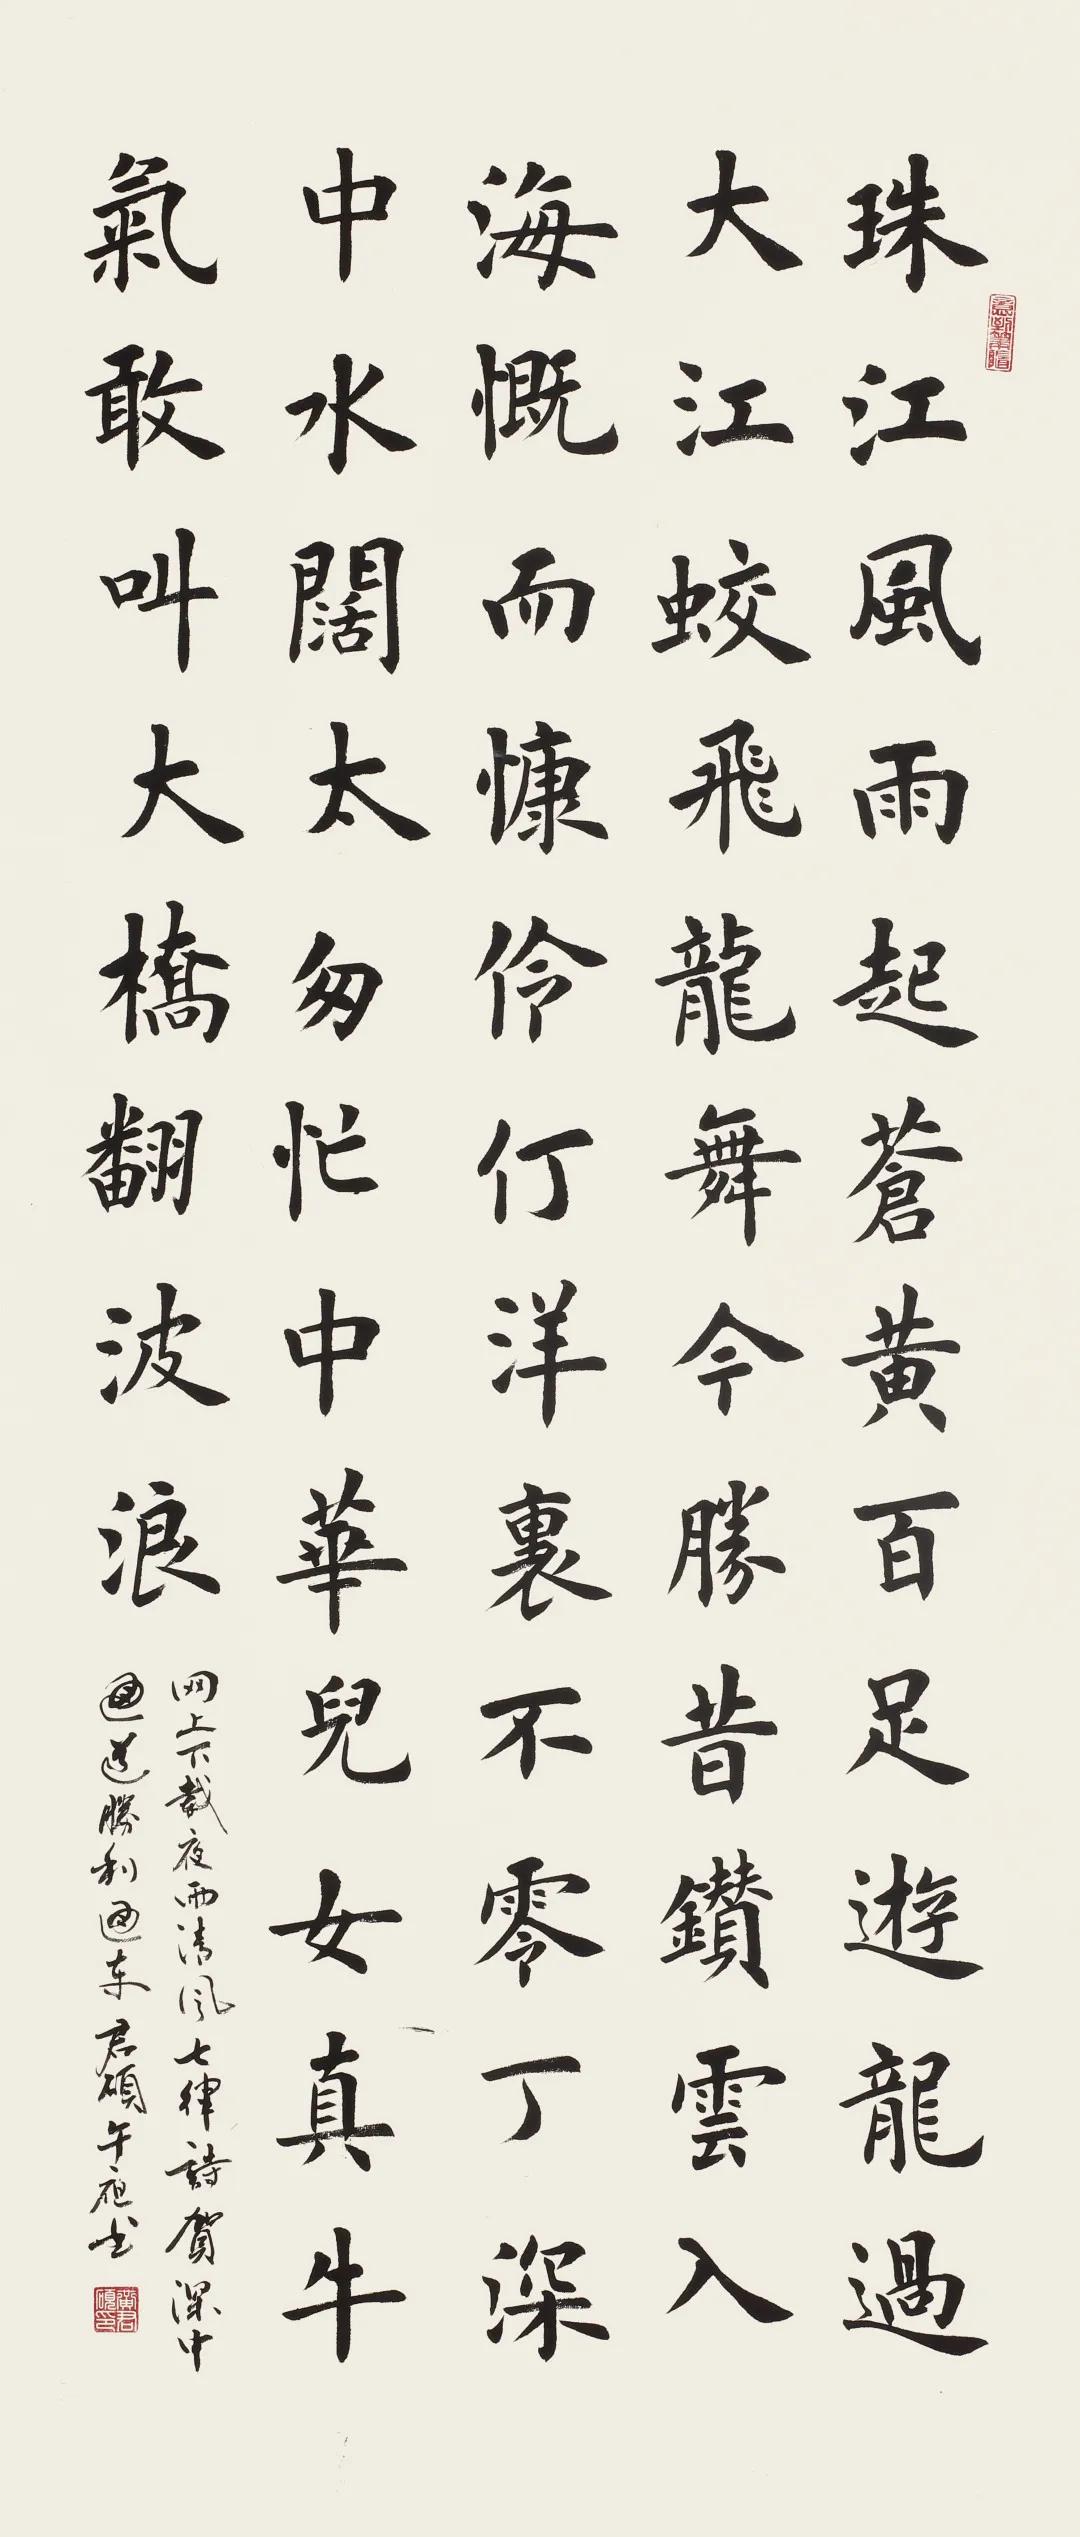 珠江風雨起蒼黄百足遊龍過
大江蛟飛龍舞今勝昔鑚雲入
海慨而慷伶仃洋裏不零丁深
中水闊太匆忙中華兒女真牛
氣敢叫大橋翻波浪
网上下载夜雨清风七律詩賀深中
通道勝利通车君碩午夜书
黄君碩印